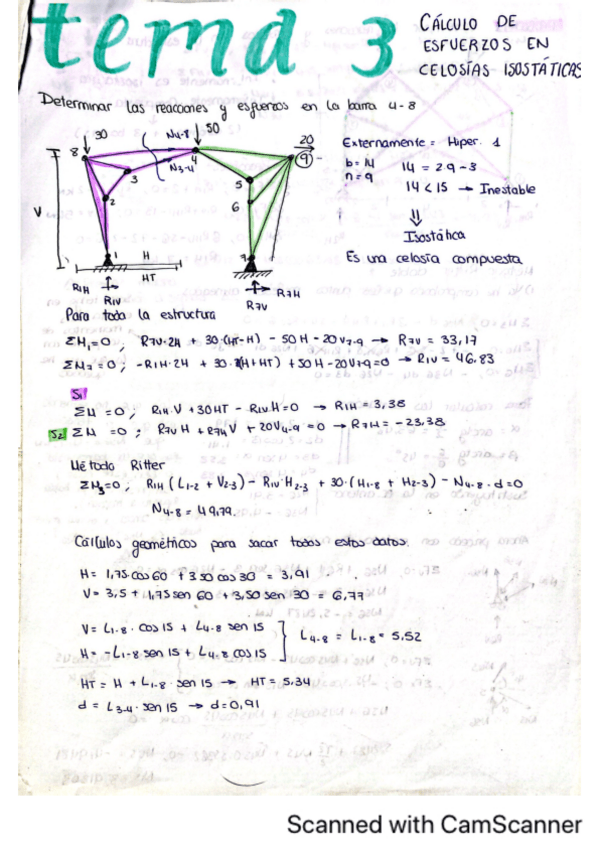 tema 3
CÁLCULO DE
ESFUERZOS EN
CELOSÍAS ISOSTÁTICAS
Determinar las reacciones y esfuerzos en la barra 4-8
30
N4-8
50
20
8
4
9
3
N3-4
5
2
6
V
1
H
7
HT
R1H
R1V
R7H
R7V
Externamente = Hiper. 1
b = 14
n = 9
14 = 2·9-3
14 < 15 → Inestable
⇓
Isostática
Es una celosía compuesta
Para toda la estructura
ΣM1=0; R7V·2H + 30·(HT-H) - 50H - 20V7-9 → R7V = 33,17
+ 30H - 20V7-9=0 → R1V = 46.83
S1
ΣM =0; R1H·V + 30HT - R1V·H=0 → R1H = 3,38
S2 ΣM =0; R7V H + R7H V + 20V4-9 =0 → R7H= -23,38
Método Ritter
ΣM3=0; R1H (L1-2 + V2-3) - R1V·H2-3 + 30·(H1-8 + H2-3) - N4-8·d=0
N4-8 = 49,79.
Cálculos geométricos para sacar todos estos datos.
H= 1,75 cos 60 + 3'50 cos 30 = 3,91
V= 3,5 + 1,75 sen 60 + 3,50 sen 30 = 6,77
V= L1-8 · cos 15 + L4-8 sen 15
H= -L1-8·sen 15 + L4-8 cos 15
L4-8 = L1-8 = 5.52
HT = H + L1-8 · sen 15 → HT = 5.34
d = L3-4 · sen 15 → d=0,91
Scanned with CamScanner